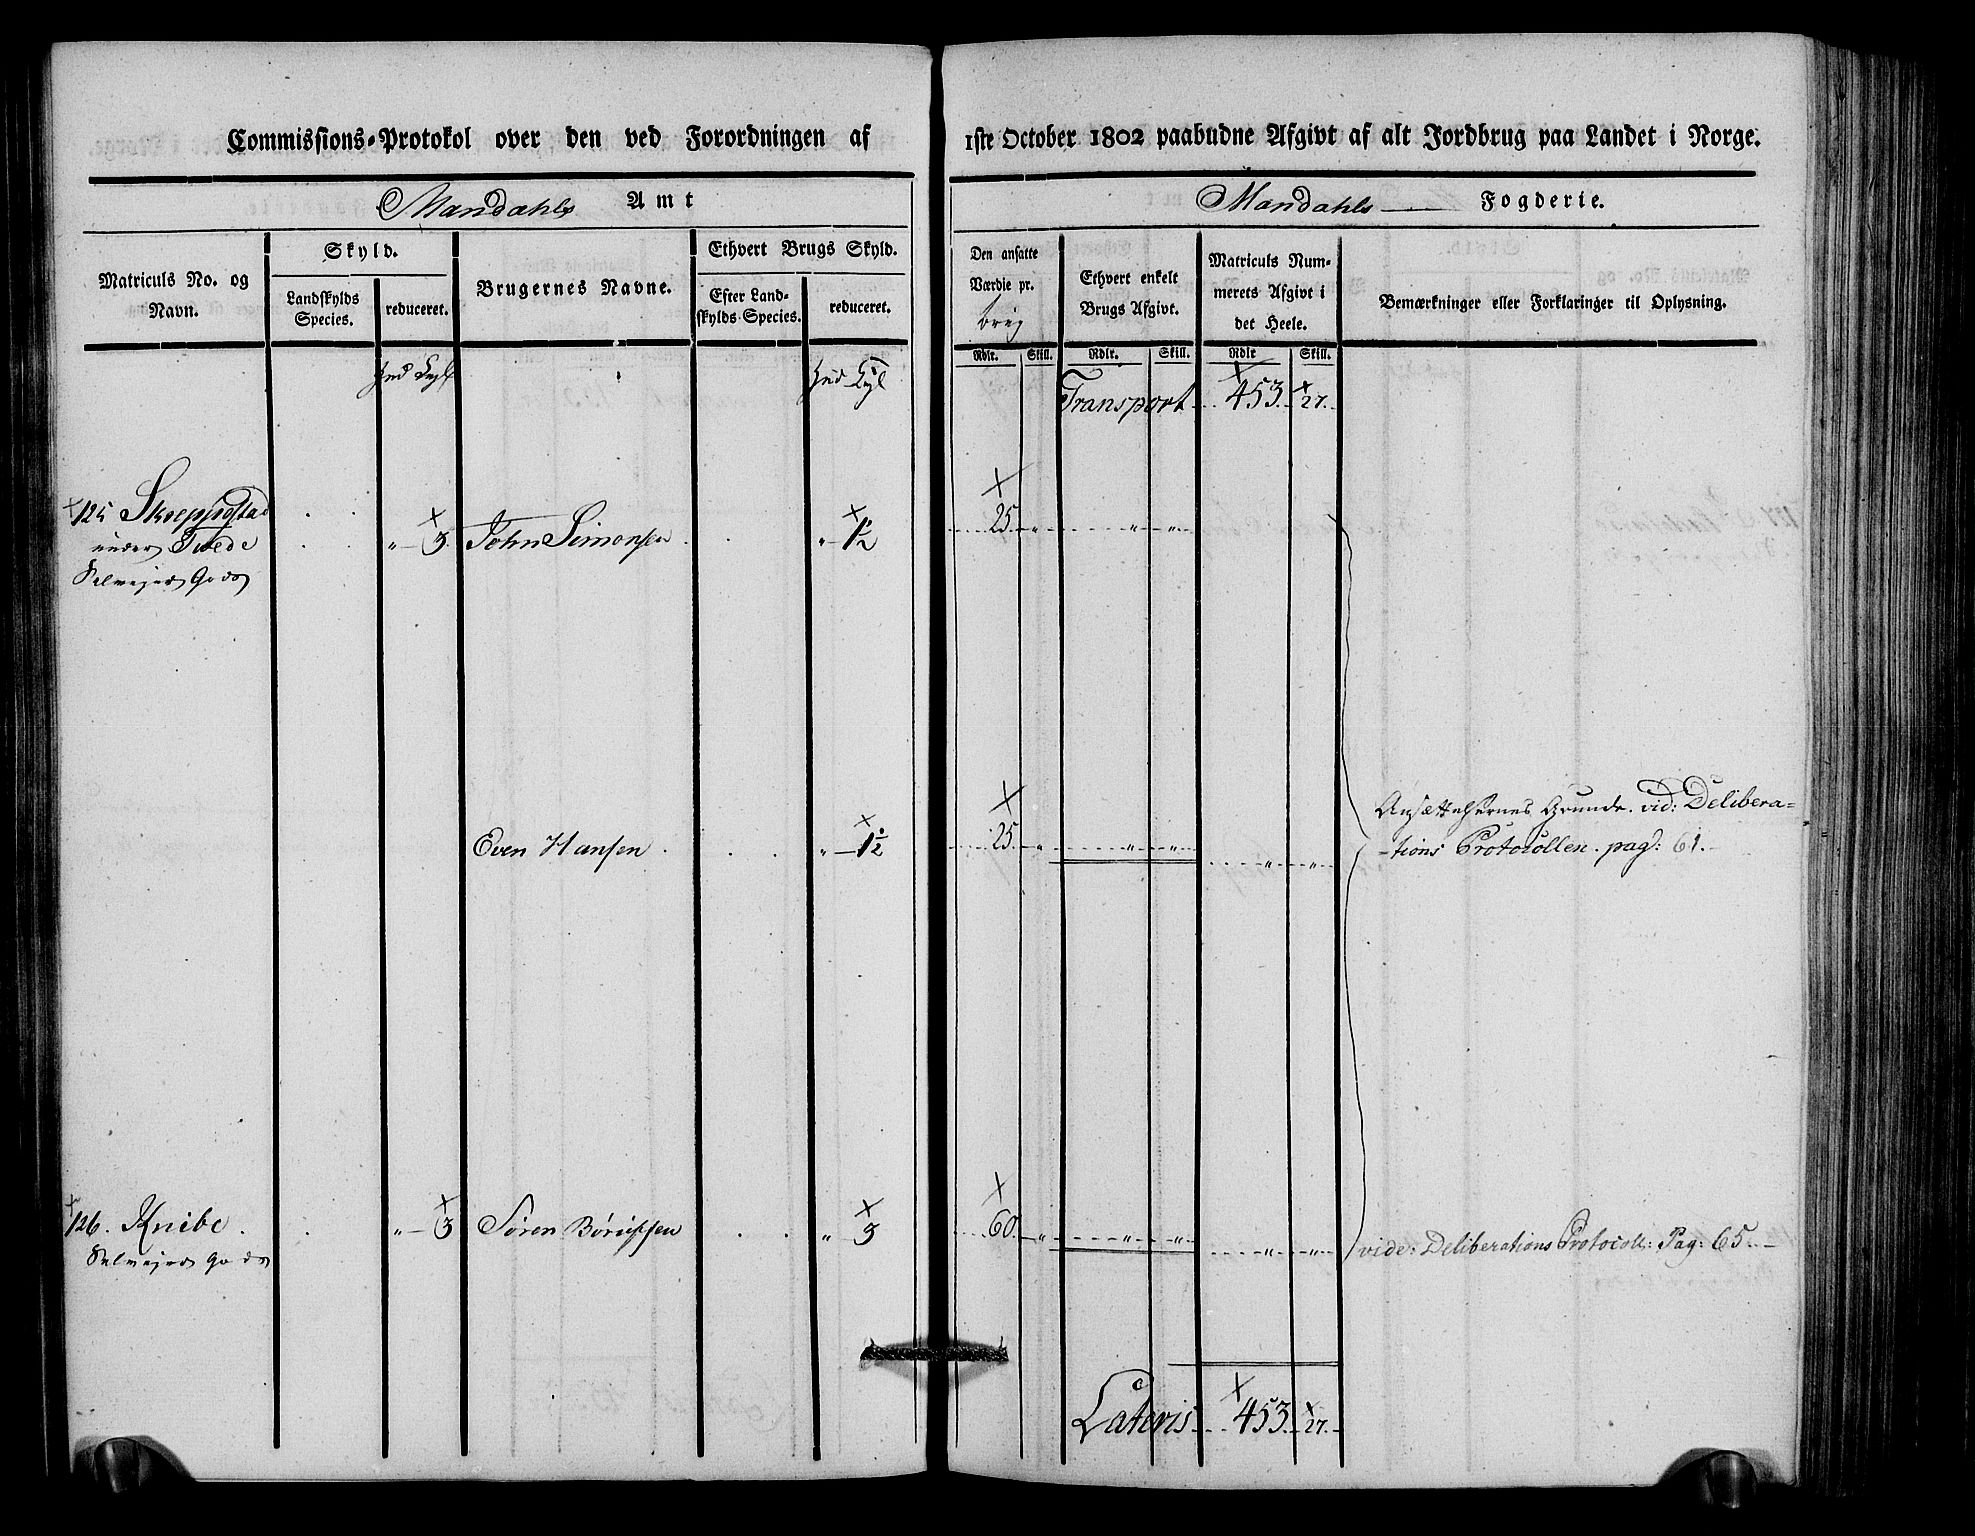 Commissions-Protokol over den ved Forordningen af 1ste October 1802 paabudne Afgivt af alt Jordbrug paa Landet i Norge.
Mandahls Amt
Mandahls Fogderie.
Matriculs No. og Navn.
Skyld.
Landskylds Species.
reduceret.
Brugernes Navne.
Ethvert Brugs Skyld.
Efter Landskylds Species.
reduceret.
Den ansatte Værdie pr.
Ethvert enkelt Brugs Afgivt.
Matriculs Nummerets Afgivt i det Heele.
Bemærkninger eller Forklaringer til Oplysning.
Rdlr. Skill. Rdlr. Skill. Rdlr Skill.
Transport 453. 27.
125 
under Tvede " 3. John Simonsen " 1½ 25. " " "
Selvejer Gods
Ansættelsernes Grunde. vid: Delibera=
Even Hansen " 1½ 25. " " " " "
-tions Protocollen. pag: 61.
126. Knibe. " 3 Sören " 3 60. " " " " " vide: Deliberations Protocoll: Pag: 65.
Selvejer Gods
Lateris 453. 27.